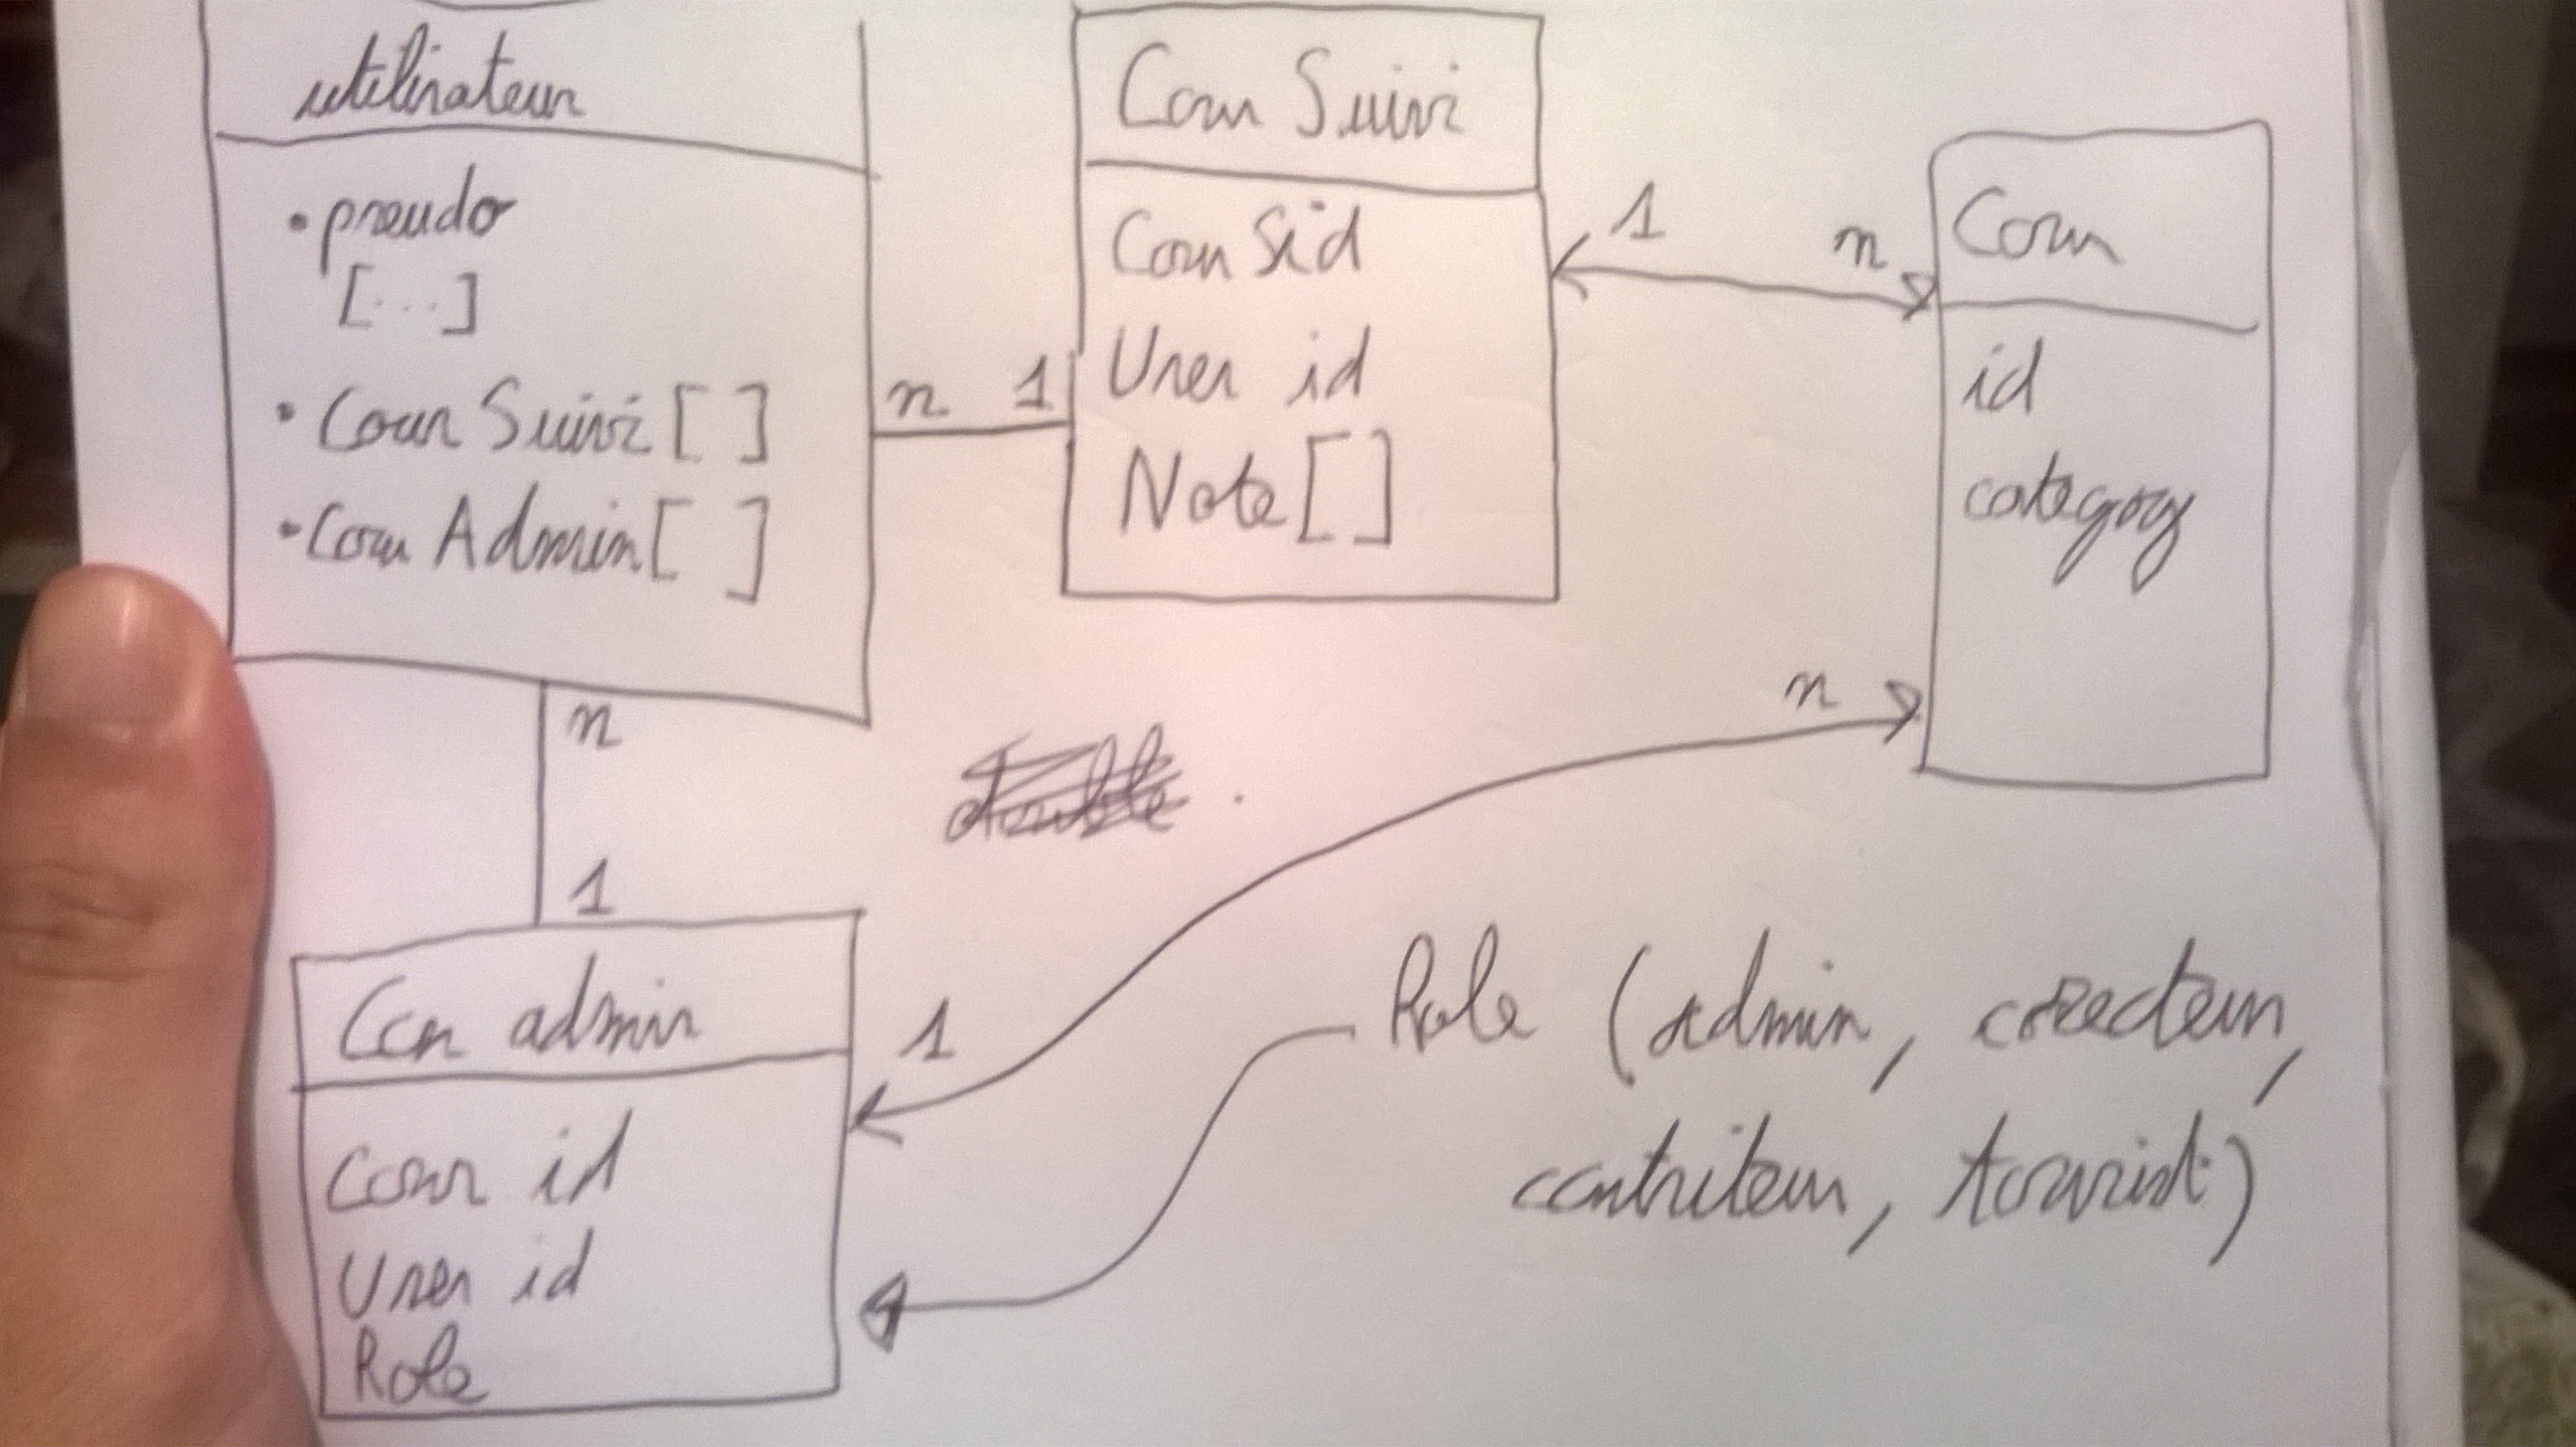 utilisateur
• pseudo
[...]
• Cour Suivi [ ]
• Cour Admin [ ]
n 1
Cour Suivi
Cour Sid
User id
Note [ ]
1 n
Cour
id
category
n
n
1
Cour admin
Cour id
User id
Role
1
Role (admin, correcteur,
contributeur, touriste)